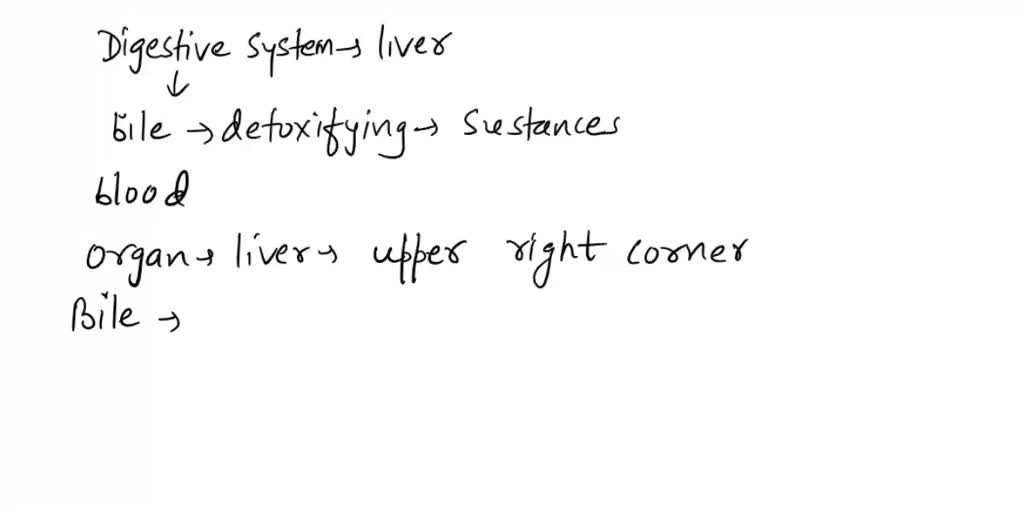 Digestive system → liver
↓
bile → detoxifying → Sustances
blood
organ → liver → upper right corner
Bile →